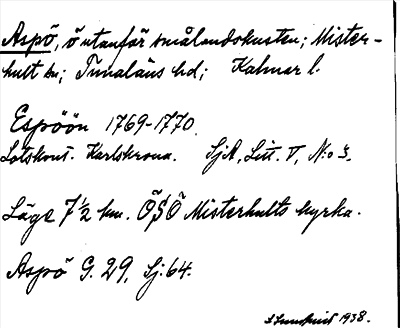 Aspö, ö utanför smålandskusten; Mister-
hult sn; Tunaläns hd; Kalmar l.
Espöön 1769-1770.
Lotskont. Karlskrona. SjA, Litt. V, N:o 3.
Läge 7 1/2 km. ÖSÖ Misterhults kyrka.
Aspö G. 29, Sj. 64.
1938.